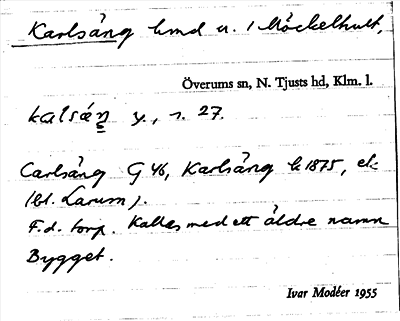 Karlsäng hmd u. 1 Möckelhult,
Överums sn, N. Tjusts hd, Klm. l.
kalsäŋ y., r. 27.
Carlsäng G 46, Karlsäng k 1875, ek
(bl. Larum).
F.d. torp. Kallas med ett äldre namn
Bygget.
Ivar Modéer 1955